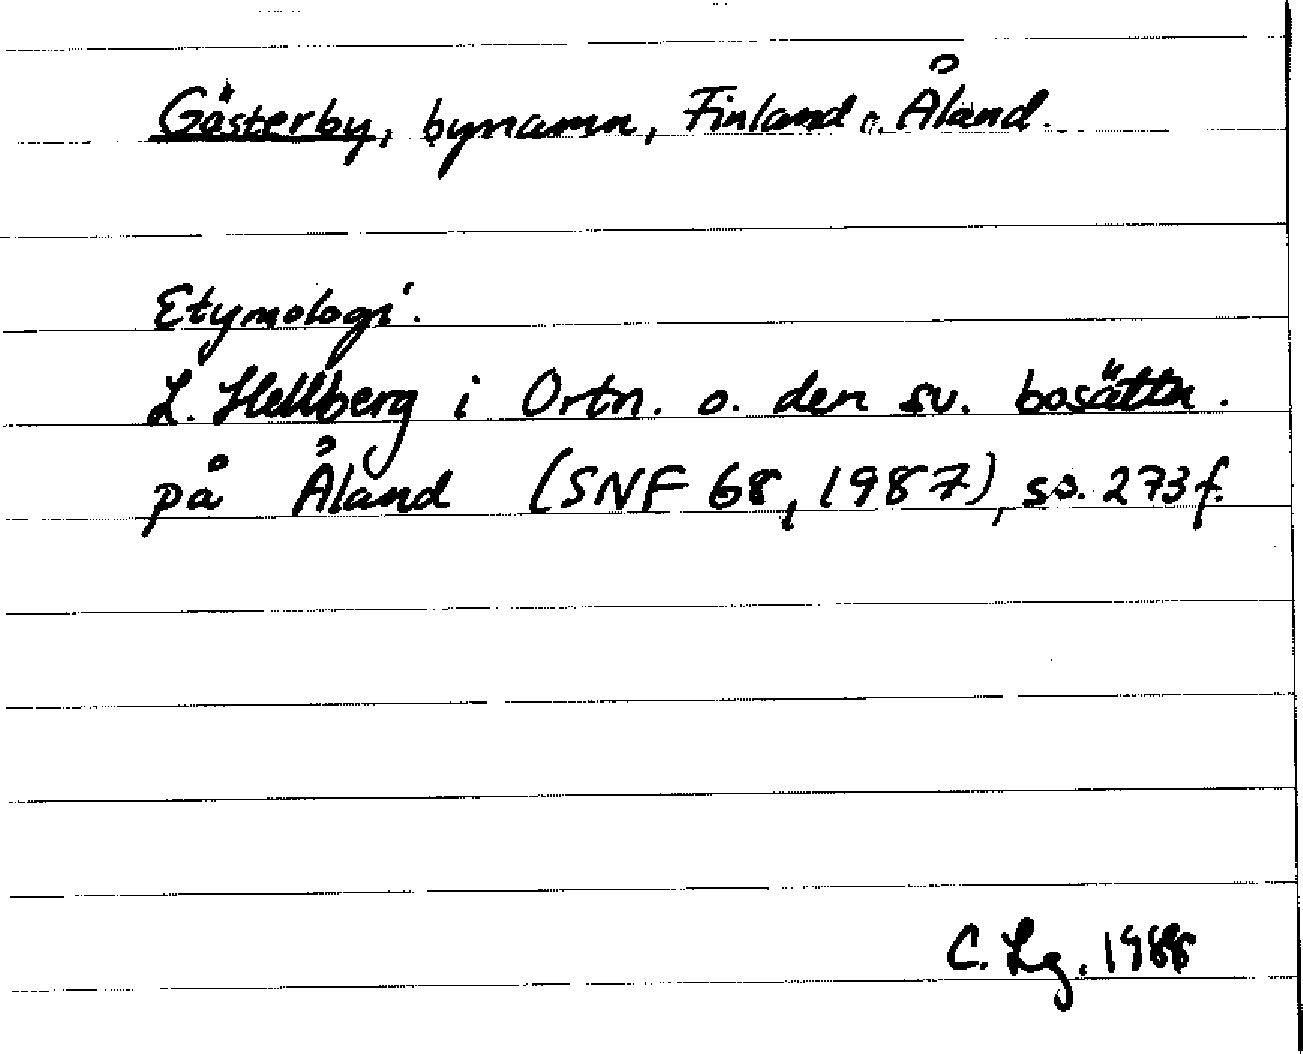 Gästerby, bynamn, Finland o. Åland.
Etymologi.
L. Hellberg i Ortn. o. den sv. bosättn.
på Åland (SNF 68, 1987), ss. 273 f.
C. Lg. 1988